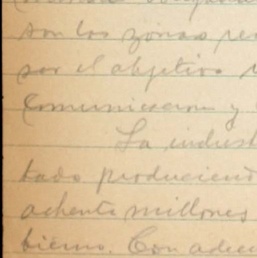 son las zonas
ser el objetivo
Comunicaciones y
La indust
tado produciendo
ochenta millones
bierno. Con adecu